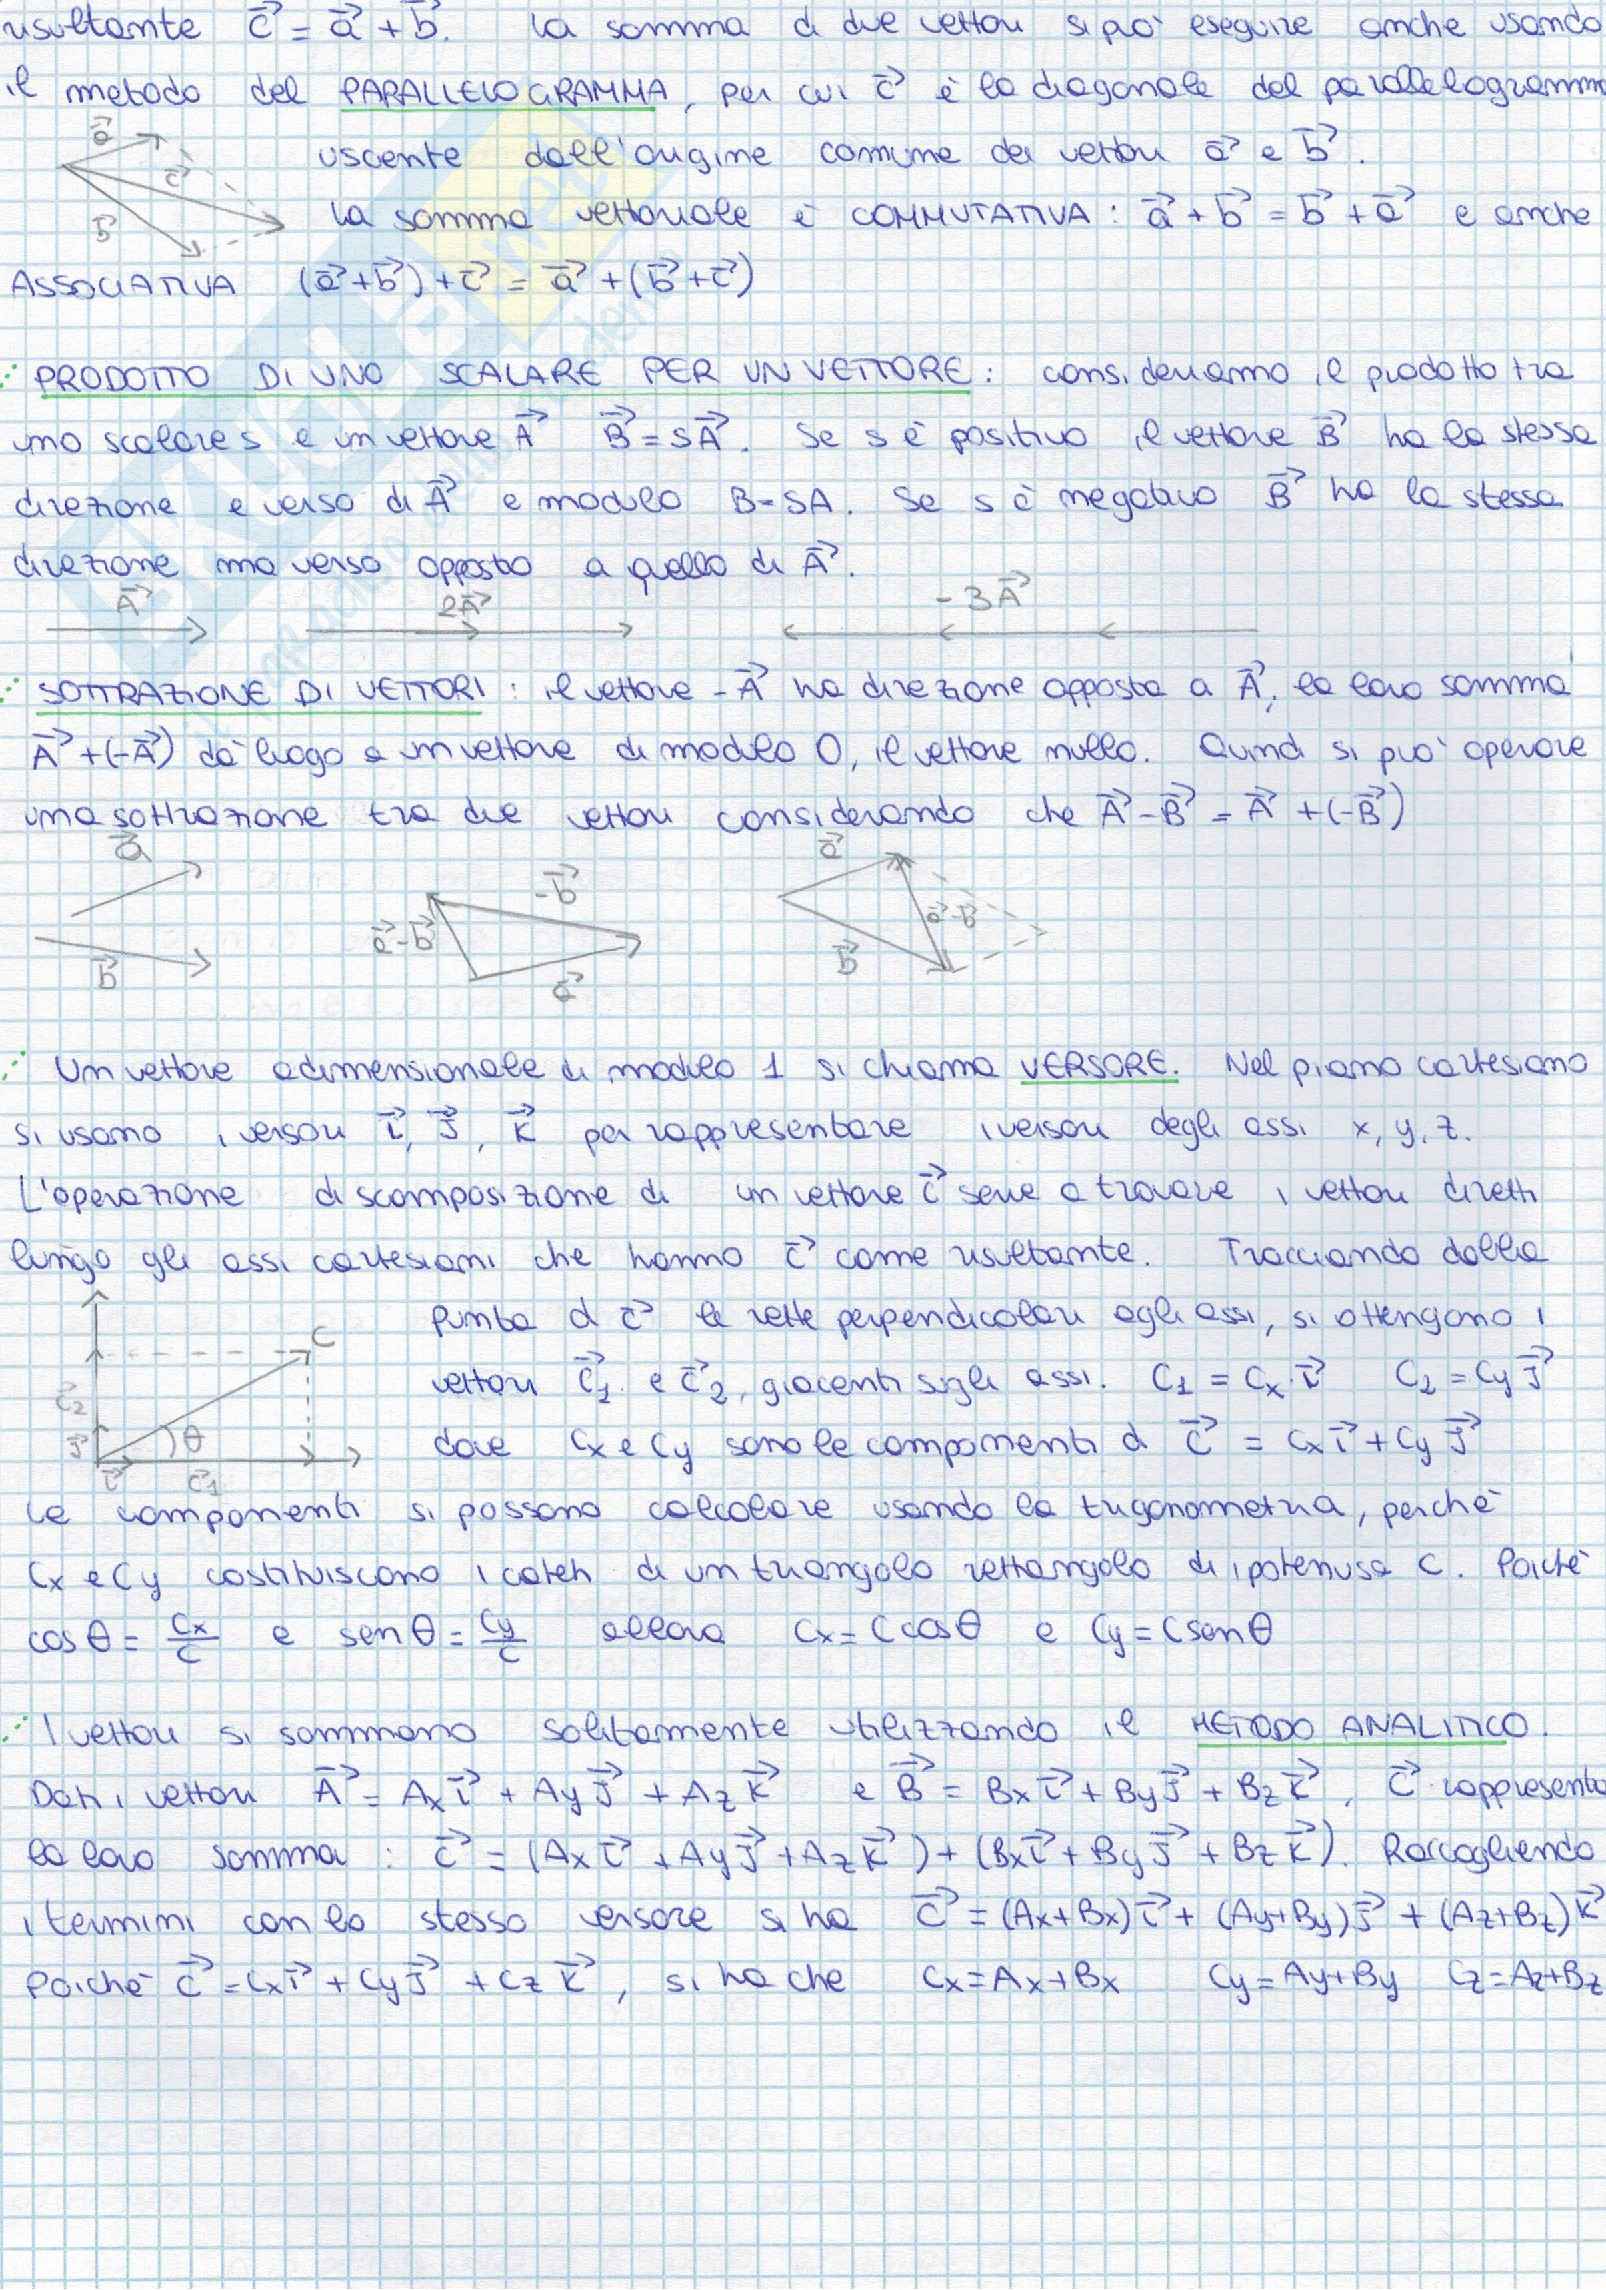 risultante c⃗ = a⃗ + b⃗. La somma di due vettori si può eseguire anche usando
il metodo del PARALLELOGRAMMA, per cui c⃗ è la diagonale del parallelogramma
uscente dall'origine comune dei vettori a⃗ e b⃗.
a⃗
c⃗
b⃗
La somma vettoriale è COMMUTATIVA: a⃗ + b⃗ = b⃗ + a⃗ e anche
ASSOCIATIVA (a⃗+b⃗)+c⃗ = a⃗+(b⃗+c⃗)
PRODOTTO DI UNO SCALARE PER UN VETTORE: consideriamo il prodotto tra
uno scalare s e un vettore A⃗ B⃗ = sA⃗. Se s è positivo il vettore B⃗ ha la stessa
direzione e verso di A⃗ e modulo B=SA. Se s è negativo B⃗ ha la stessa
direzione ma verso opposto a quello di A⃗.
A⃗ 2A⃗ -3A⃗
SOTTRAZIONE DI VETTORI: il vettore -A⃗ ha direzione opposta a A⃗, la loro somma
A⃗+(-A⃗) dà luogo a un vettore di modulo 0, il vettore nullo. Quindi si può operare
una sottrazione tra due vettori considerando che A⃗-B⃗ = A⃗+(-B⃗)
a⃗ -b⃗ a⃗
a⃗-b⃗ a⃗-b⃗
b⃗ a⃗ b⃗
Un vettore adimensionale di modulo 1 si chiama VERSORE. Nel piano cartesiano
si usano i versori i⃗, j⃗, k⃗ per rappresentare i versori degli assi x, y, z.
L'operazione di scomposizione di un vettore c⃗ serve a trovare i vettori diretti
lungo gli assi cartesiani che hanno c⃗ come risultante. Tracciando dalla
punta di c⃗ le rette perpendicolari agli assi, si ottengono i
vettori c⃗1 e c⃗2, giacenti sugli assi. C1 = Cx·i⃗ C2 = Cy j⃗
dove Cx e Cy sono le componenti di C⃗ = Cx i⃗ + Cy j⃗
C
c⃗2
j⃗ θ
i⃗ c⃗1
Le componenti si possono calcolare usando la trigonometria, perchè
Cx e Cy costituiscono i cateti di un triangolo rettangolo di ipotenusa C. Poichè
cosθ = Cx/C e senθ = Cy/C allora Cx = C cosθ e Cy = C senθ
I vettori si sommano solitamente utilizzando il METODO ANALITICO.
Dati i vettori A⃗ = Ax i⃗ + Ay j⃗ + Az k⃗ e B⃗ = Bx i⃗ + By j⃗ + Bz k⃗, C⃗ rappresenta
la loro somma: C⃗ = (Ax i⃗ + Ay j⃗ + Az k⃗) + (Bx i⃗ + By j⃗ + Bz k⃗). Raccogliendo
i termini con lo stesso versore si ha C⃗ = (Ax+Bx) i⃗ + (Ay+By) j⃗ + (Az+Bz) k⃗
Poichè C⃗ = Cx i⃗ + Cy j⃗ + Cz k⃗, si ha che Cx=Ax+Bx Cy=Ay+By Cz=Az+Bz